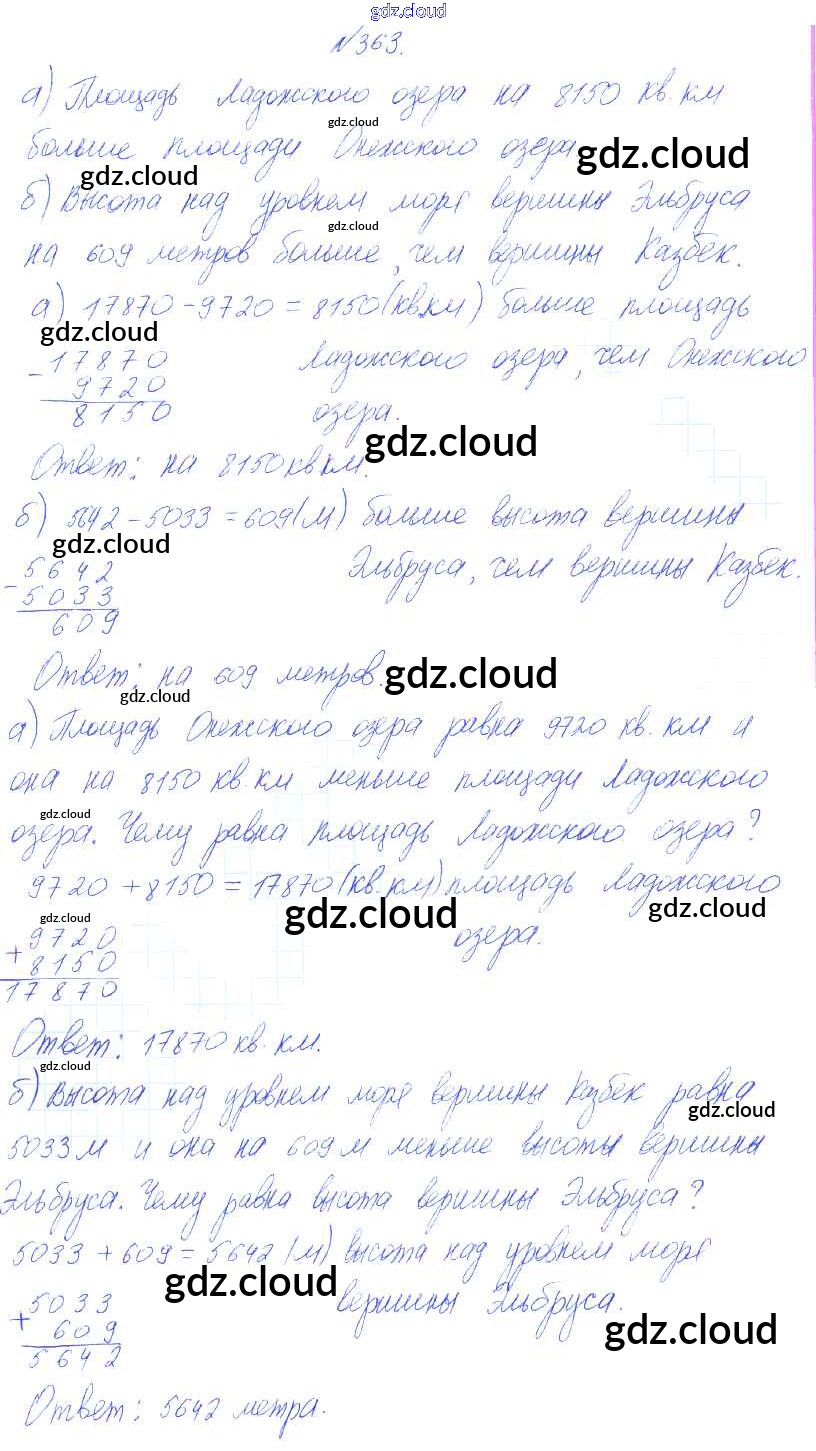 gdz.cloud
№363.
а) Площадь Ладожского озера на 8150 кв.км
gdz.cloud
больше площади Онежского озера
gdz.cloud
gdz.cloud
б) Высота над уровнем море вершины Эльбруса
gdz.cloud
на 609 метров больше, чем вершины Казбек.
а) 17870-9720=8150(кв.км) больше площадь
gdz.cloud
-17870 Ладожского озера, чем Онежского
9720
8150 озера.
gdz.cloud
Ответ: на 8150 кв км.
б) 5642-5033=609(м) больше высота вершины
gdz.cloud
-5642 Эльбруса, чем вершины Казбек.
5033
609
Ответ: на 609 метров.
gdz.cloud
gdz.cloud
а) Площадь Онежского озера равна 9720 кв.км и
она на 8150 кв.км меньше площади Ладожского
gdz.cloud
озера. Чему равна площадь Ладожского озера?
9720+8150=17870(кв.км) площадь Ладожского
gdz.cloud gdz.cloud gdz.cloud
+9720 озера.
8150
17870
Ответ: 17870 кв.км.
gdz.cloud
б) Высота над уровнем море вершины Казбек равна
gdz.cloud
5033м и она на 609м меньше высоты вершины
Эльбруса. Чему равна высота вершины Эльбруса?
5033+609=5642(м) высота над уровнем море
gdz.cloud
+5033 вершины Эльбруса.
609
gdz.cloud
5642
Ответ: 5642 метра.